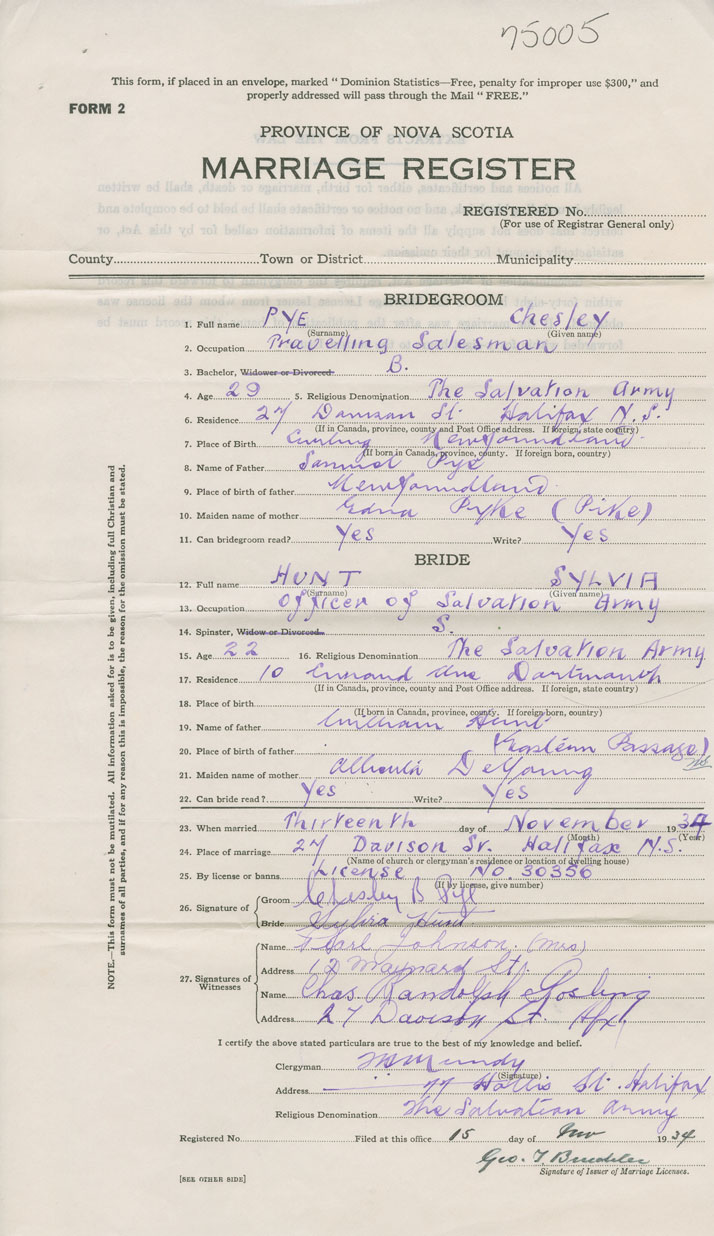 75005
This form, if placed in an envelope, marked “ Dominion Statistics—Free, penalty for improper use $300,” and
properly addressed will pass through the Mail “ FREE.”
FORM 2
PROVINCE OF NOVA SCOTIA
MARRIAGE REGISTER
REGISTERED No.
(For use of Registrar General only)
County Town or District Municipality
BRIDEGROOM
1. Full name PYE Chesley
(Surname) (Given name)
2. Occupation Travelling Salesman
3. Bachelor, Widower or Divorced. B.
4. Age 29 5. Religious Denomination The Salvation Army
6. Residence 27 Davison St. Halifax N.S.
(If in Canada, province, county and Post Office address. If foreign, state country)
7. Place of Birth Curling Newfoundland
(If born in Canada, province, county. If foreign born, country)
8. Name of Father Samuel Pye
9. Place of birth of father Newfoundland
10. Maiden name of mother Edna Pyke (Pike)
11. Can bridegroom read? Yes Write? Yes
BRIDE
12. Full name HUNT SYLVIA
(Surname) (Given name)
13. Occupation Officer of Salvation Army
14. Spinster, Widow or Divorced. S.
15. Age 22 16. Religious Denomination The Salvation Army
17. Residence 10 Ave Dartmouth
(If in Canada, province, county and Post Office address. If foreign, state country)
18. Place of birth
(If born in Canada, province, county. If foreign born, country)
19. Name of father William Hunt
20. Place of birth of father (Eastern Passage) NS
21. Maiden name of mother DeYoung
22. Can bride read? Yes Write? Yes
23. When married Thirteenth day of November 1934
(Month) (Year)
24. Place of marriage 27 Davison St. Halifax N.S.
(Name of church or clergyman's residence or location of dwelling house)
25. By license or banns License No. 30356
(If by license, give number)
26. Signature of Groom Chesley B Pye
Bride Sylvia Hunt
27. Signatures of Witnesses
Name Johnson (Mrs)
Address 12 Maynard St.
Name Chas. Randolph Gosling
Address 27 Davison St. Hfx.
I certify the above stated particulars are true to the best of my knowledge and belief.
Clergyman Mundy
(Signature)
Address 77 Hollis St. Halifax
Religious Denomination The Salvation Army
Registered No. Filed at this office 15 day of Nov 1934
Geo. T.
Signature of Issuer of Marriage Licenses.
[SEE OTHER SIDE]
NOTE.—This form must not be mutilated. All information asked for is to be given, including full Christian and
surnames of all parties, and if for any reason this is impossible, the reason for the omission must be stated.